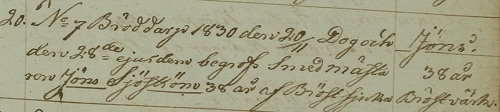 20. No 7 Bröddarp 1830 den 20/11 Dog och Jöns.
den 28de ejusdem begrofs Smedmästa 38 år
ren Jöns Sjöström 38 år af Bröst sjuka Bröstvärk.